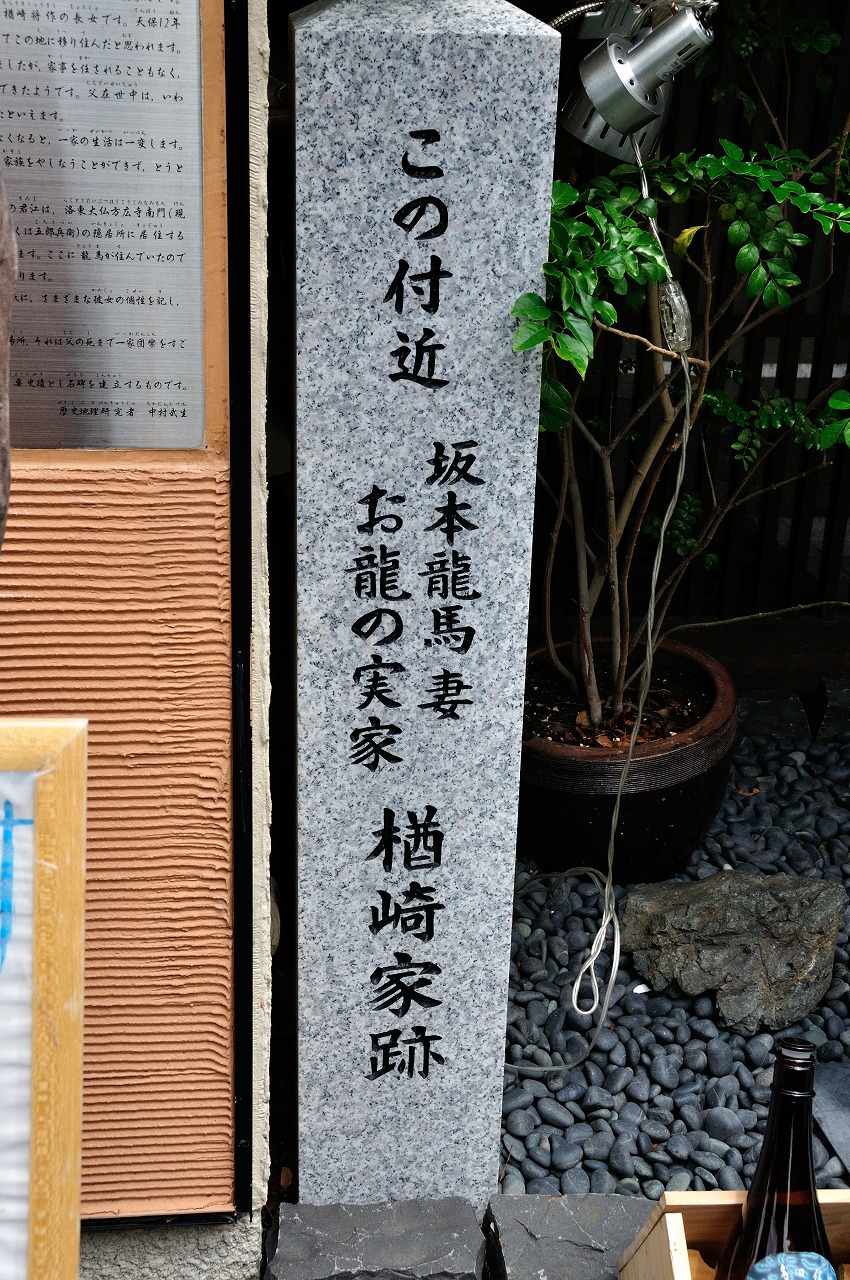 この付近
坂本龍馬妻
お龍の実家
楢崎家跡
楢崎将作の長女です。天保12年
てこの地に移り住んだと思われます。
ましたが、家事を任されることもなく、
できたようです。父在世中は、いわ
たといえます。
なくなると、一家の生活は一変します。
家族をやしなうことができず、とうと
の君江は、洛東大仏方広寺南門(現
くは五郎兵衛)の隠居所に居住する
ます。ここに龍馬が住んでいたので
ります。
伝に、さまざまな彼女の個性を記し、
場所、それは父の死まで一家団欒をすご
要史蹟とし石碑を建立するものです。
歴史地理研究者 中村武生